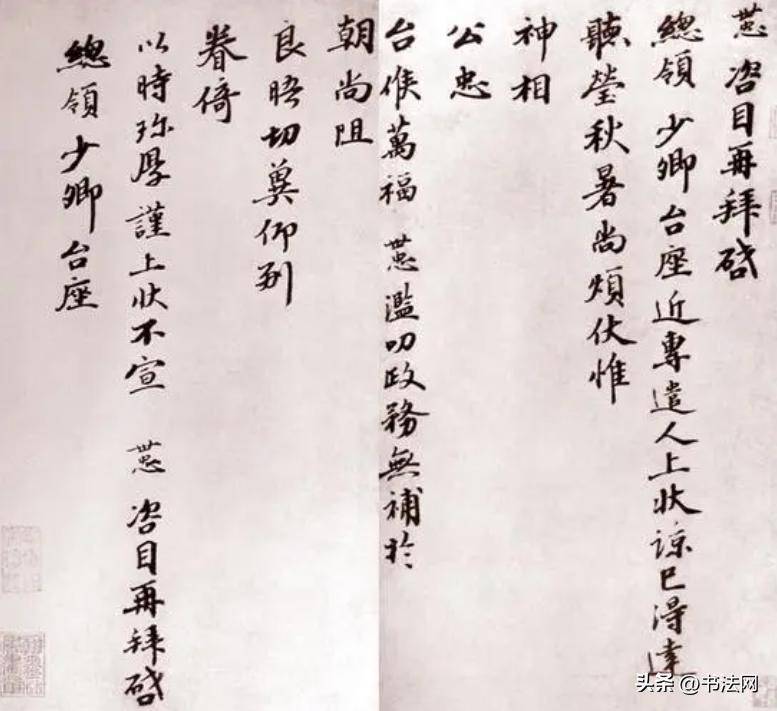 咨目再拜啟
總領少卿台座近專遣人上狀諒已得達
聽瑩秋暑尚煩伏惟
神相
公忠
台候萬福 濫叨政務無補於
朝尚阻
良晤切冀仰副
眷倚
以時珎厚謹上狀不宣 咨目再拜啟
總領少卿台座
头条 @书法网